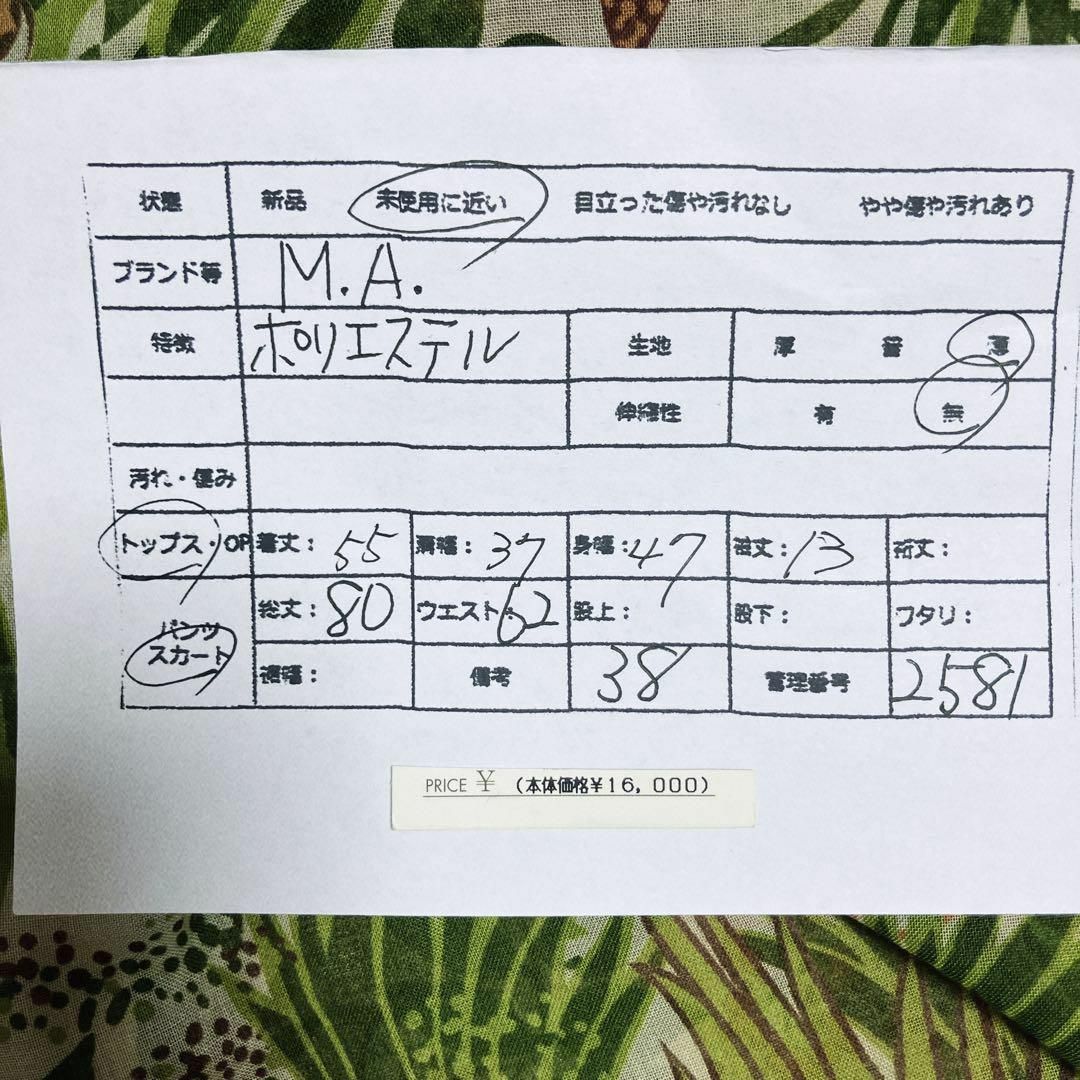 状態 新品 未使用に近い 目立った傷や汚れなし やや傷や汚れあり
ブランド等 M.A.
特徴 ポリエステル 生地 厚 普 薄
伸縮性 有 無
汚れ・傷み
トップス・OP 着丈: 55 肩幅: 37 身幅: 47 袖丈: 13 裄丈:
パンツ スカート 総丈: 80 ウエスト: 62 股上: 股下: ワタリ:
裾幅: 備考 38 管理番号 2581
PRICE ¥ (本体価格¥16,000)